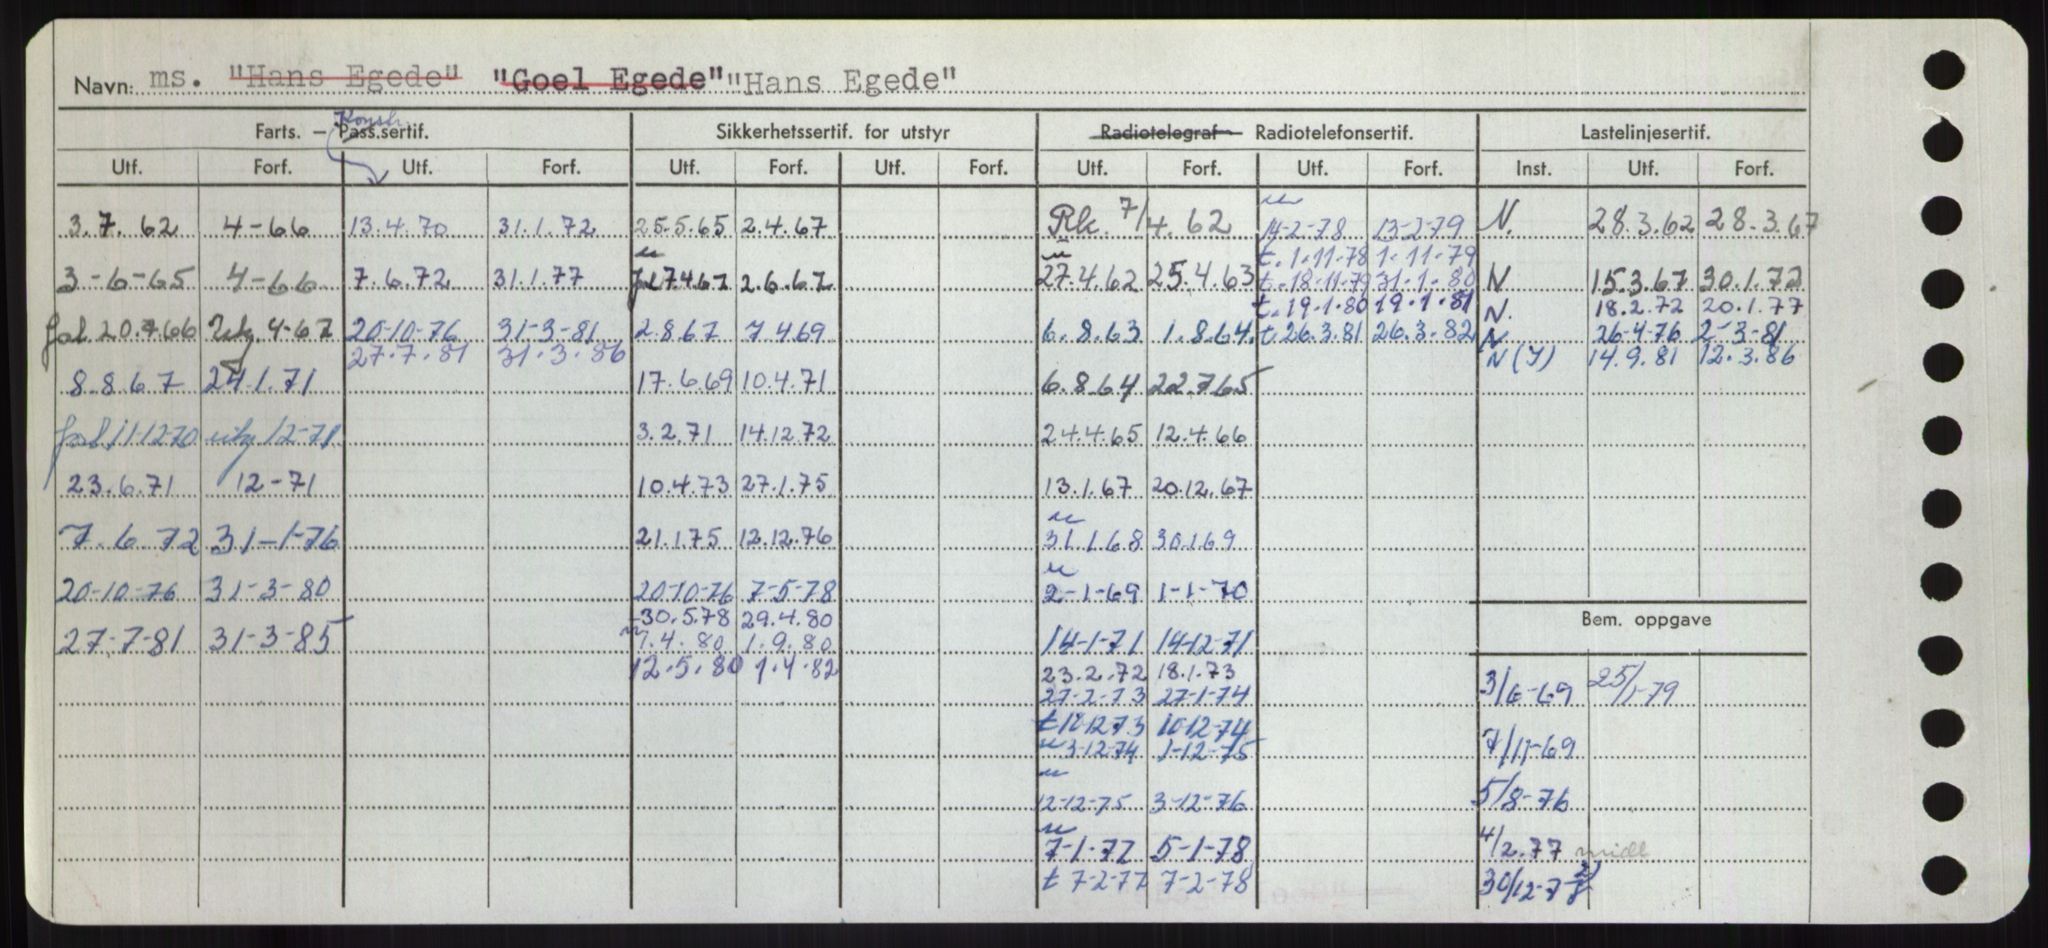 Navn: ms. "Hans Egede" "Goel Egede" "Hans Egede"
Konstr.
Farts. – Pass.sertif. Sikkerhetssertif. for utstyr Radiotelegraf- Radiotelefonsertif. Lastelinjesertif.
Utf. Forf. Utf. Forf. Utf. Forf. Utf. Forf. Utf. Forf. Utf. Forf. Inst. Utf. Forf.
3.7.62 4-66 13.4.70 31.1.72 25.5.65 2.4.67 Rk. 7/4.62 14-2-78 13-2-79 N. 28.3.62 28.3.67
t.1.11.78 1.11.79
3-6-65 4-66 7.6.72 31.1.77 2.6.67 27.4.62 25.4.63 t.18.11.79 31.1.80 N 15.3.67 30.1.72
t.19.1.80 19.1.81 N. 18.2.72 20.1.77
fol. 20.7.66 utg. 4-67 20-10-76 31-3-81 2.8.67 7.4.69 6.8.63 1.8.64. t.26.3.81 26.3.82 N 26-4-76 2-3-81
27.7.81 31.3.86 N(I) 14.9.81 12.3.86
8.8.67 24.1.71 17.6.69 10.4.71 6.8.64 22.7.65
fol 11-12-70 utg 12-71 3.2.71 14.12.72 24.4.65 12.4.66
23.6.71 12-71 10.4.73 27.1.75 13.1.67 20.12.67
7.6.72 31-1-76 21.1.75 12.12.76 31.1.68 30.1.69
20-10-76 31-3-80 20-10-76 7-5-78 2-1-69 1-1-70
30.5.78 29.4.80 Bem. oppgave
27-7-81 31-3-85 1.4.80 1.9.80 14-1-71 14-12-71
12.5.80 1.4.82 23.2.72 18.1.73
27-2-73 27-1-74 3/6-69 25/1-79
t 10-12-73 10-12-74
3-12-74 1-12-75 7/11-69
12-12-75 3-12-76 5/8-76
7-1-77 5-1-78 4/2.77 midl
t 7-2-77 7-2-78 30/12-77